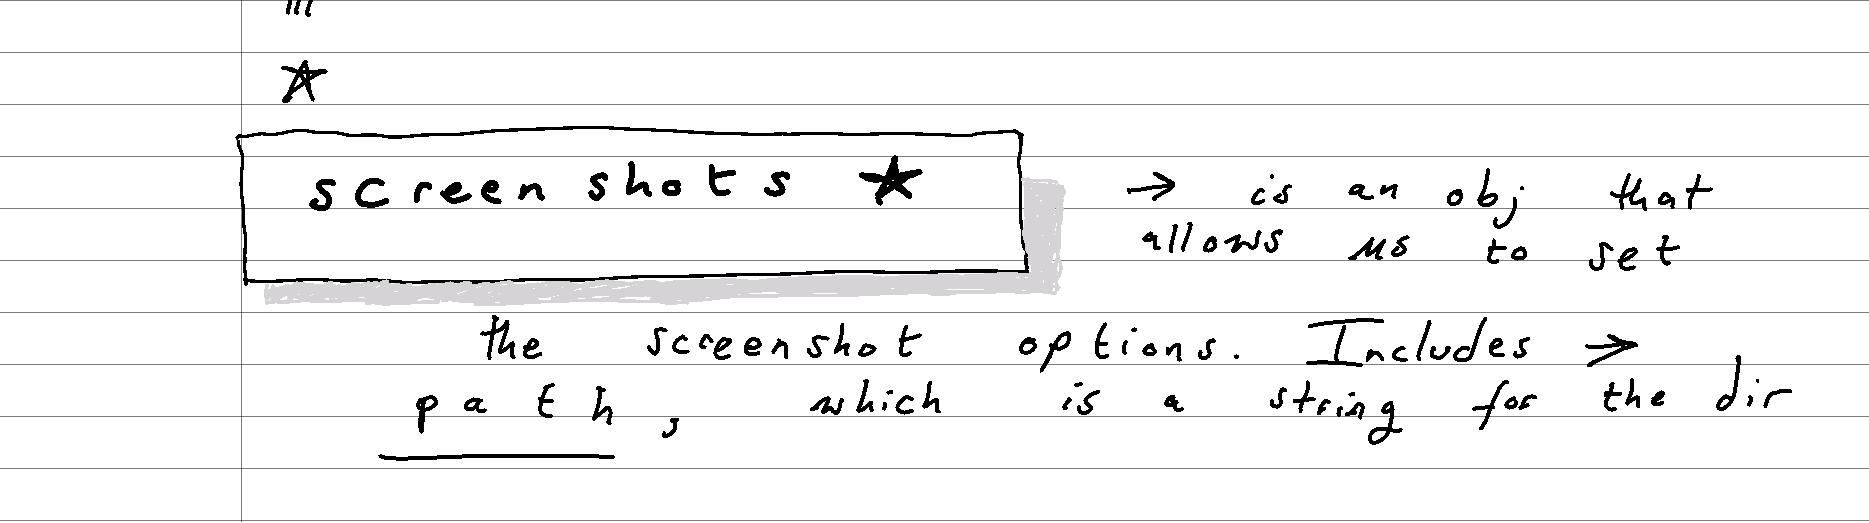 ★
screenshots ★ → is an obj that
allows us to set
the screenshot options. Includes →
path, which is a string for the dir